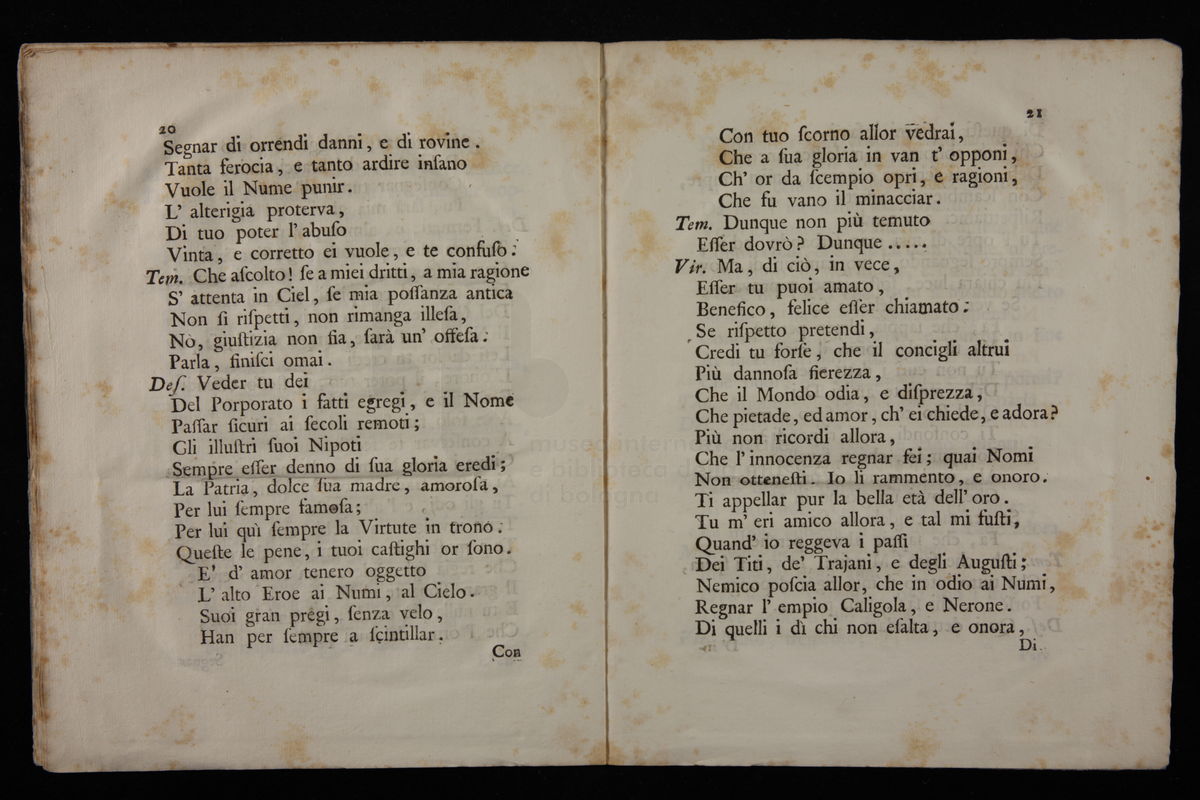 20
Segnar di orrendi danni, e di rovine.
Tanta ferocia, e tanto ardire inſano
Vuole il Nume punir.
L' alterigia proterva,
Di tuo poter l'abuſo
Vinta, e corretto ei vuole, e te confuſo.
Tem. Che aſcolto! ſe a miei dritti, a mia ragione
S' attenta in Ciel, ſe mia poſſanza antica
Non ſi riſpetti, non rimanga illeſa,
Nò, giuſtizia non ſia, ſarà un' offeſa.
Parla, finiſci omai.
Deſ. Veder tu dei
Del Porporato i fatti egregi, e il Nome
Paſſar ſicuri ai ſecoli remoti;
Gli illuſtri ſuoi Nipoti
Sempre eſſer denno di ſua gloria eredi;
La Patria, dolce ſua madre, amoroſa,
Per lui ſempre famoſa;
Per lui quì ſempre la Virtute in trono.
Queſte le pene, i tuoi caſtighi or ſono.
E' d' amor tenero oggetto
L' alto Eroe ai Numi, al Cielo.
Suoi gran prégi, ſenza velo,
Han per ſempre a ſcintillar.
Con
21
Con tuo ſcorno allor vedrai,
Che a ſua gloria in van t' opponi,
Ch' or da ſcempio opri, e ragioni,
Che fu vano il minacciar.
Tem. Dunque non più temuto
Eſſer dovrò? Dunque .....
Vir. Ma, di ciò, in vece,
Eſſer tu puoi amato,
Benefico, felice eſſer chiamato.
Se riſpetto pretendi,
Credi tu forſe, che il concigli altrui
Più dannoſa fierezza,
Che il Mondo odia, e diſprezza,
Che pietade, ed amor, ch' ei chiede, e adora?
Più non ricordi allora,
Che l'innocenza regnar fei; quai Nomi
Non otteneſti. Io li rammento, e onoro.
Ti appellar pur la bella età dell' oro.
Tu m' eri amico allora, e tal mi fuſti,
Quand' io reggeva i paſſi
Dei Titi, de' Trajani, e degli Auguſti;
Nemico poſcia allor, che in odio ai Numi,
Regnar l' empio Caligola, e Nerone.
Di quelli i dì chi non eſalta, e onora,
Di
museo intern
e biblioteca d
di bologna